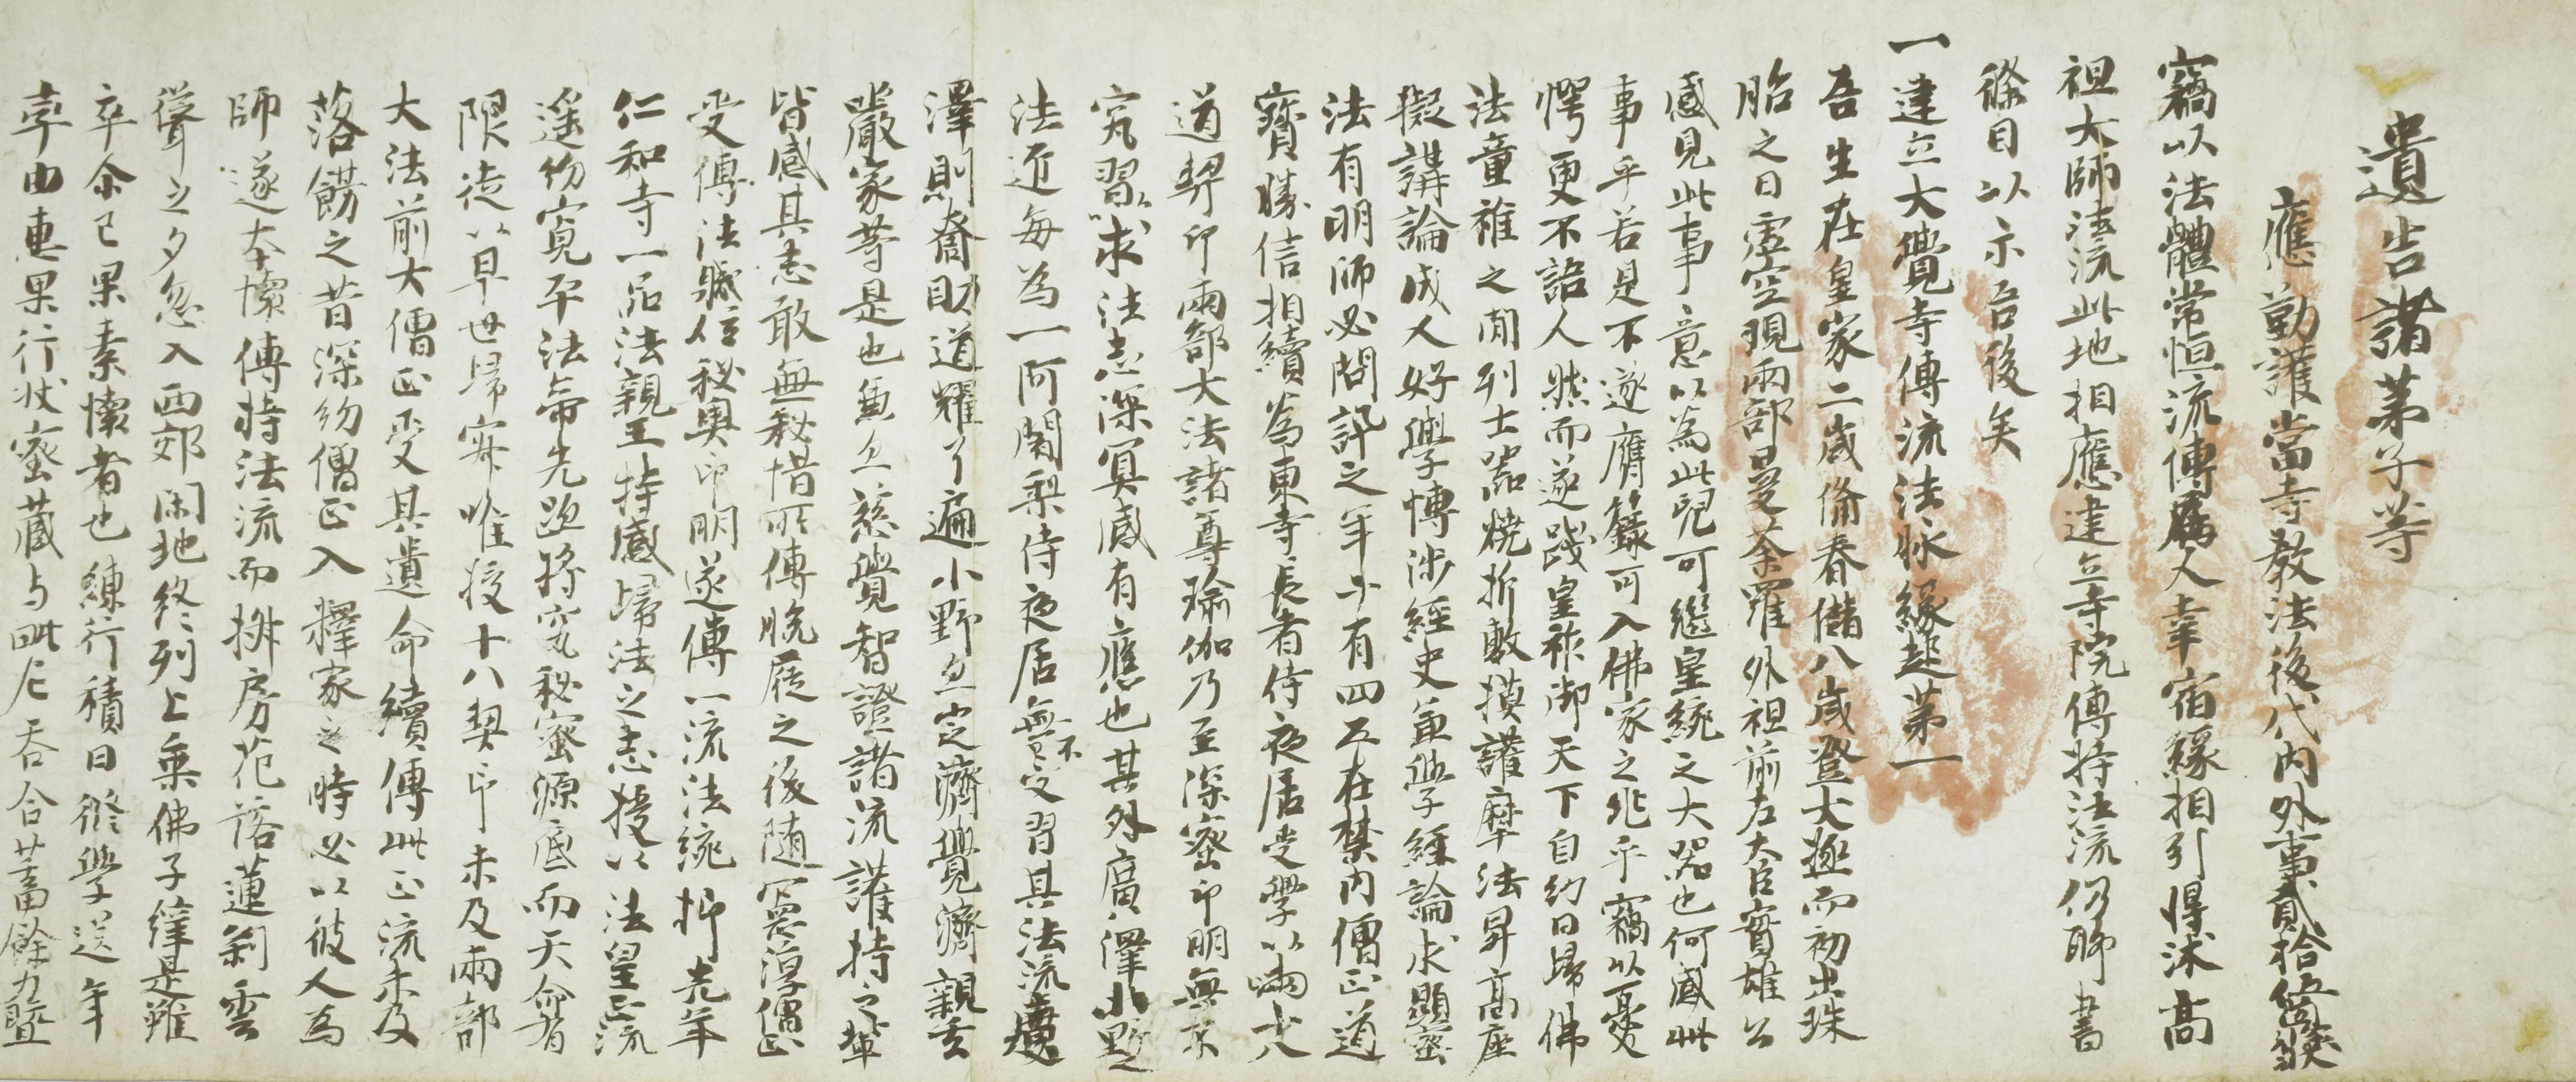 遺告諸弟子等
應勤護當寺教法後代内外事貳拾箇獎
竊以法體常恒流傳属人幸宿緣相引得沐高
祖大師法流此地相應建立寺院傳持法流仍聊書
條目以示吾後矣
一建立大覺寺傳流法脉緣起第一
吾生在皇家二歲備春儲八歲登大極而初出珠
胎之日虚空現兩部曼荼羅外祖前左大臣實雄公
感見此事意以為此兒可繼皇統之大器也何感此
事乎若是不遂膺籙可入佛家之兆乎竊以憂
愕更不語人然而遂踐皇祚御天下自約曰歸佛
法童稚之間列士器燒折敷摸護摩法昇高座
擬講論成人好學愽涉經史兼學經論求顯密
法有明師必問訊之年廿有四五在禁内僧正道
寶勝信相續為東寺長者侍夜居受學以兩十八
道契印兩部大法諸尊瑜伽乃至深密印明無不
究習以求法志深冥感有應也其外廣澤小野之
法近每為一阿闍梨侍夜居無不受習其法流廣
澤則奝助道耀了遍小野則定濟覺濟親玄
嚴家等是也兼又慈覺智證諸流護持之輩
皆感其志敢無秘惜所傳脱屣之後随寬淳僧正
受傳法職位秘奥印明遂傳一流法統抑先年
仁和寺一品法親王特感歸法之志授以法皇正流
遥約寬平法帝先迹將究秘密源底而天命有
限徒以早世歸寂唯授十八契印未及兩部
大法前大僧正受其遺命續傳此正流未及
落餝之昔深約僧正入釋家之時必以彼人為
師遂本懷傳持法流而排房范落蓮剎雲
聳之夕忽入西郊閑地終列上乗佛子續是雖
卒尒已果素懷者也練行積日修學送年
幸由惠果行狀密藏与毗尼吞合蓄餘力暨